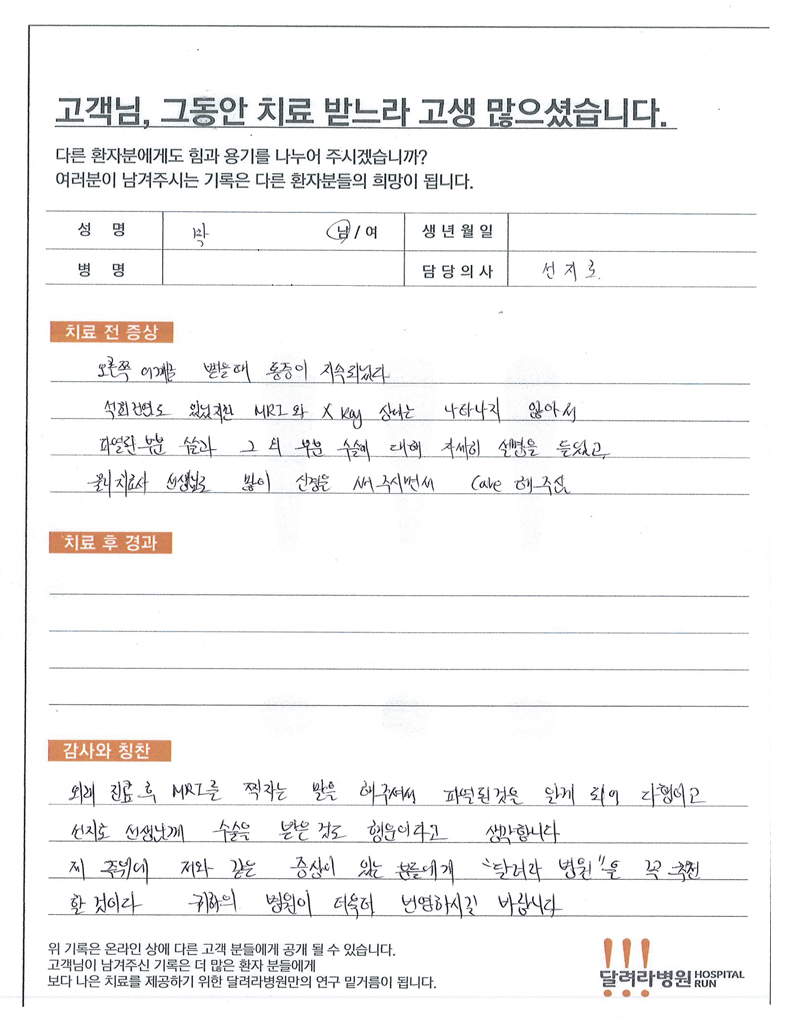 고객님, 그동안 치료 받느라 고생 많으셨습니다.
다른 환자분에게도 힘과 용기를 나누어 주시겠습니까?
여러분이 남겨주시는 기록은 다른 환자분들의 희망이 됩니다.
성 명 박 남 / 여 생년월일
병 명 담당의사 선지호
치료 전 증상
오른쪽 어깨를 뻗을때 통증이 지속되었다
석회건염도 있었지만 MRI와 X Ray 상에는 나타나지 않아서
파열된 부분 수술과 그 외 부분 수술에 대해 자세히 설명을 들었고,
물리치료사 선생님도 많이 신경을 써주시면서 Care 해주심
치료 후 경과
감사와 칭찬
외래 진료 후 MRI를 찍자는 말을 해주셔서 파열된것을 알게 되어 다행이고
선지호 선생님께 수술을 받은 것도 행운이라고 생각합니다
제 주위에 저와 같은 증상이 있는 분들에게 "달려라 병원"을 꼭 추천
할 것이다 귀하의 병원이 더욱더 번영하시길 바랍니다
위 기록은 온라인 상에 다른 고객 분들에게 공개 될 수 있습니다.
고객님이 남겨주신 기록은 더 많은 환자 분들에게
보다 나은 치료를 제공하기 위한 달려라병원만의 연구 밑거름이 됩니다.
!!!
달려라병원 HOSPITAL RUN